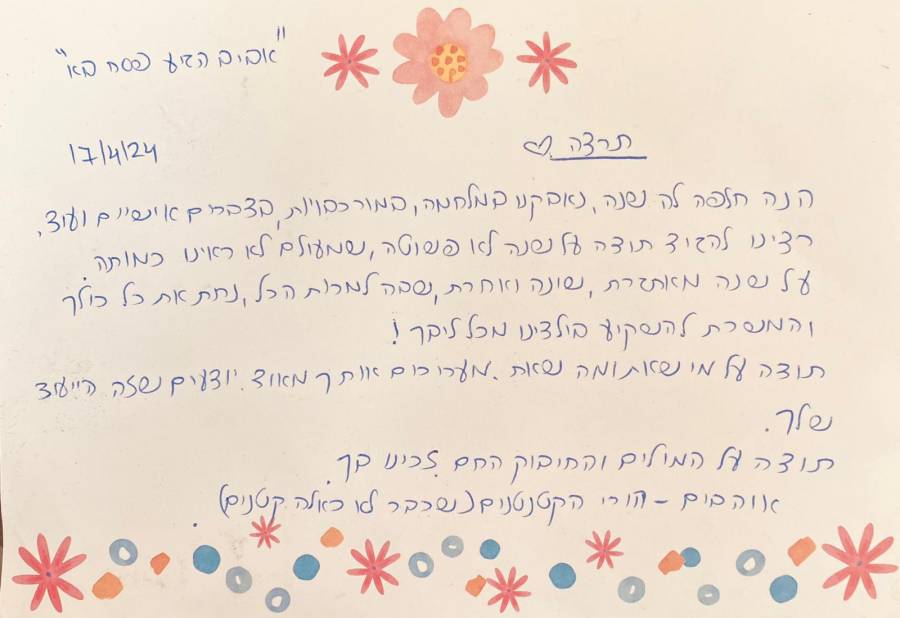 "אביב הגיע פסח בא"
17/4/24
תרצה ♡
הנה חלפה לה שנה, נאבקנו במלחמה, במורכבויות, בצברים אישיים ועוד,
רצינו להגיד תודה על שנה לא פשוטה, שמעולם לא ראינו כמותה.
על שנה מאתגרת, שונה ואחרת, שבה למרות הכל, נתת את כל כולך
והמשכת להשקיע בילדינו מכל ליבך!
תודה על מי שאת ומה שאת. מעריכים אותך מאוד. יודעים שזה הייעוד
שלך.
תודה על המילים והחיבוק החם. זכינו בך.
אוהבים - הורי הקטנטנים (שכבר לא כאלה קטנים).